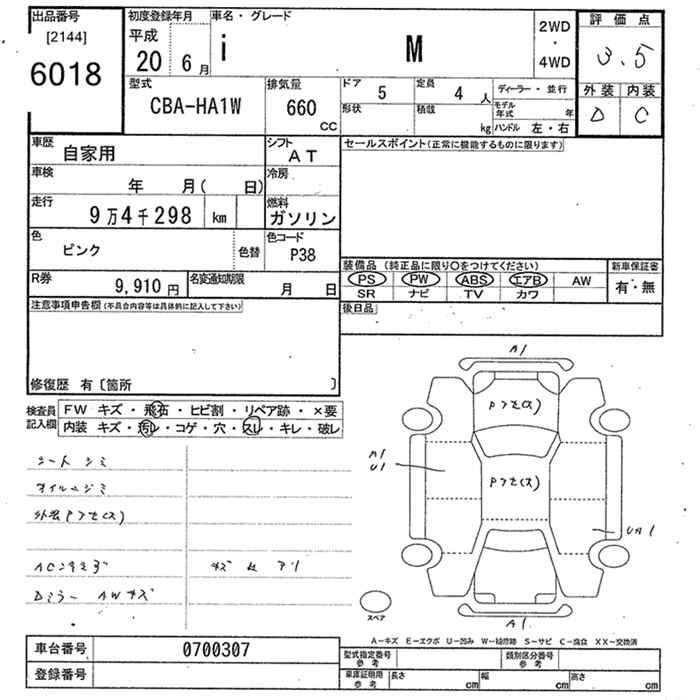 出品番号
[2144]
6018
初度登録年月
平成
20 6月
車名・グレード
i M
2WD
・
4WD
評価点
3.5
外装 内装
D C
型式
CBA-HA1W
排気量
660
cc
ドア
5
形状
定員
4 人
積載
kg
ディーラー・並行
モデル年式 年
ハンドル 左・右
車歴
自家用
シフト
AT
車検
年 月( 日)
冷房
走行
9万4千298 km
燃料
ガソリン
色
ピンク
色替
色コード
P38
R券
9,910円
名変通知期限
月 日
セールスポイント(正常に機能するものに限ります)
装備品(純正品に限り○をつけてください)
PS PW ABS エアB AW
SR ナビ TV カワ
新車保証書
有・無
後日品
注意事項申告欄(不具合内容等は具体的に記入して下さい)
修復歴 有〔箇所 〕
検査員記入欄
FW キズ・飛石・ヒビ割・リペア跡・×要
内装 キズ・汚レ・コゲ・穴・スレ・キレ・破レ
シートシミ
オイルニジミ
外装Pフセ(ス)
ACコンキズ
キズ 凹 アリ
Dミラー AWキズ
A1
Pフセ(ス)
A1
U1
Pフセ(ス)
UA1
A1
スペア
A－キズ E－エクボ U－凹み W－補修跡 S－サビ C－腐食 XX－交換済
車台番号
0700307
登録番号
型式指定番号
参考
類別区分番号
参考
車庫証明用
参考
長さ cm
幅 cm
高さ cm